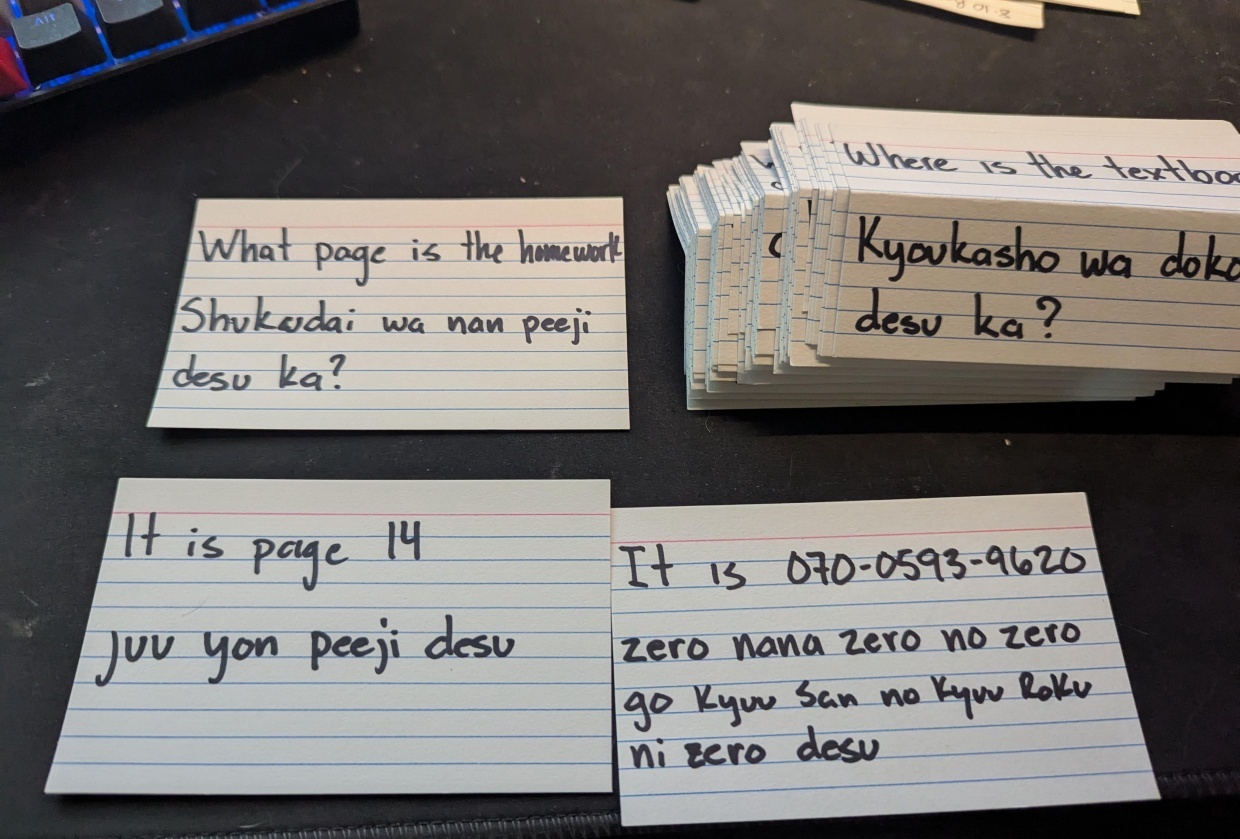 Alt
What page is the homework
Shukudai wa nan peeji
desu ka?
Where is the textboo
Kyoukasho wa doko
desu ka?
It is page 14
juu yon peeji desu
It is 070-0593-9620
zero nana zero no zero
go kyuu san no kyuu Roku
ni zero desu